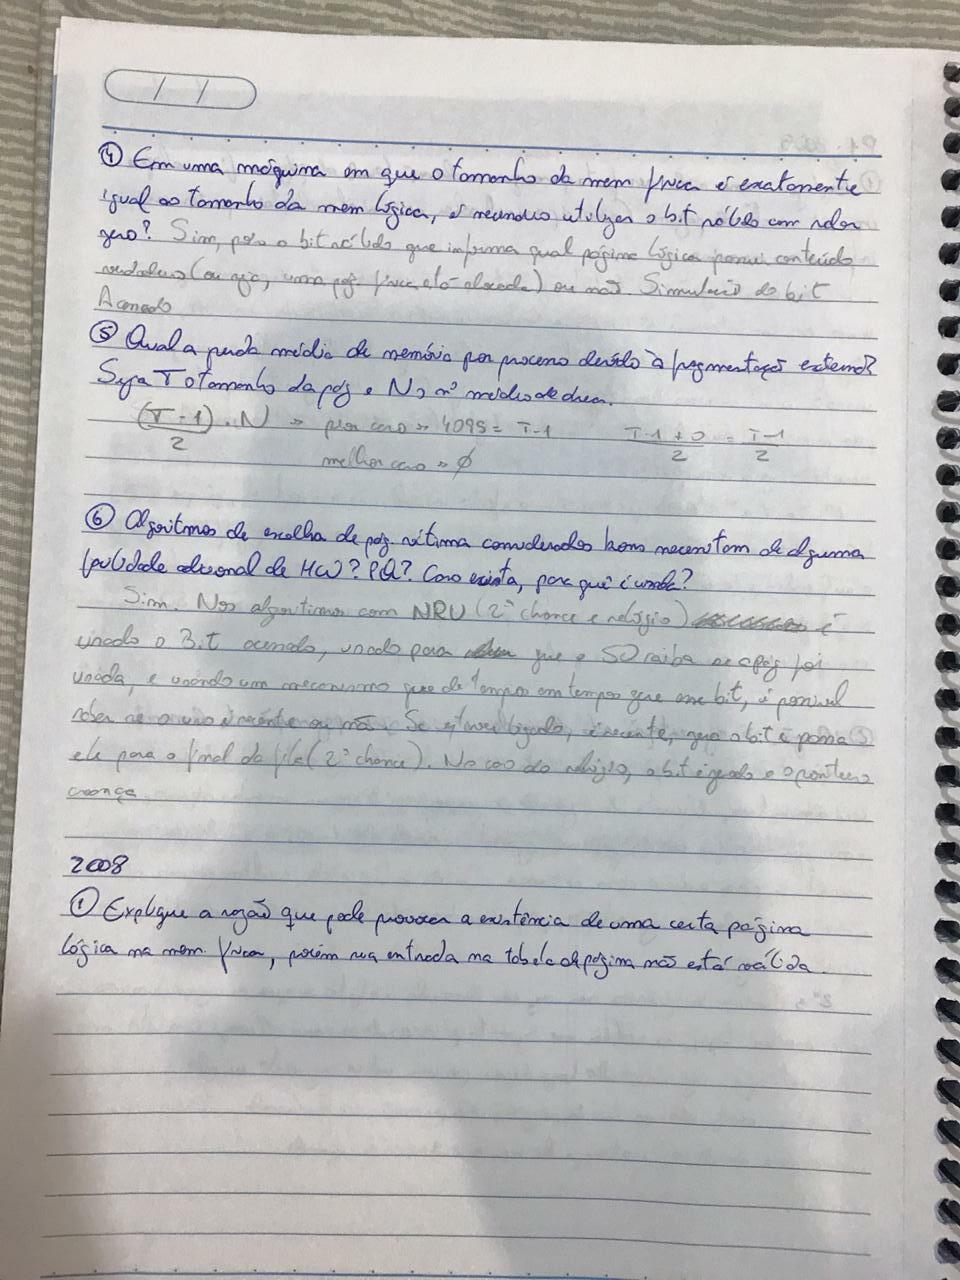 ④ Em uma máquina em que o tamanho da mem física é exatamente
igual ao tamanho da mem lógica, é necessário utilizar o bit válido com valor
zero? Sim, pois o bit válido que informa qual página lógica possui conteúdo
verdadeiro (ou seja, uma pág. física está alocada) ou não. Simulação do bit
Acessado
⑤ Qual a perda média de memória por processo devido à fragmentação externa?
Seja T o tamanho da pág e N, nº médio de áreas.
(T-1)/2 . N » pior caso » 4095 = T-1 T-1+0/2 = T-1/2
melhor caso » ∅
⑥ Algoritmos de escolha de pág. vítima considerados bons necessitam de alguma
facilidade adicional de HW? PQ? Caso exista, para quê é usada?
Sim. Nos algoritimos com NRU (2ª chance e relógio) é
usado o Bit acessado, usado para que o SO saiba se a pág foi
usada, e usando um mecanismo que de tempos em tempos zera esse bit, é possível
saber se o uso é recente ou não. Se estiver ligado, é recente, zera o bit e passa
ele para o final da fila (2ª chance). No caso do relógio, o bit é zerado e o ponteiro
avança.
2008
① Explique a razão que pode provocar a existência de uma certa página
lógica na mem. física, porém sua entrada na tabela de página não está válida.